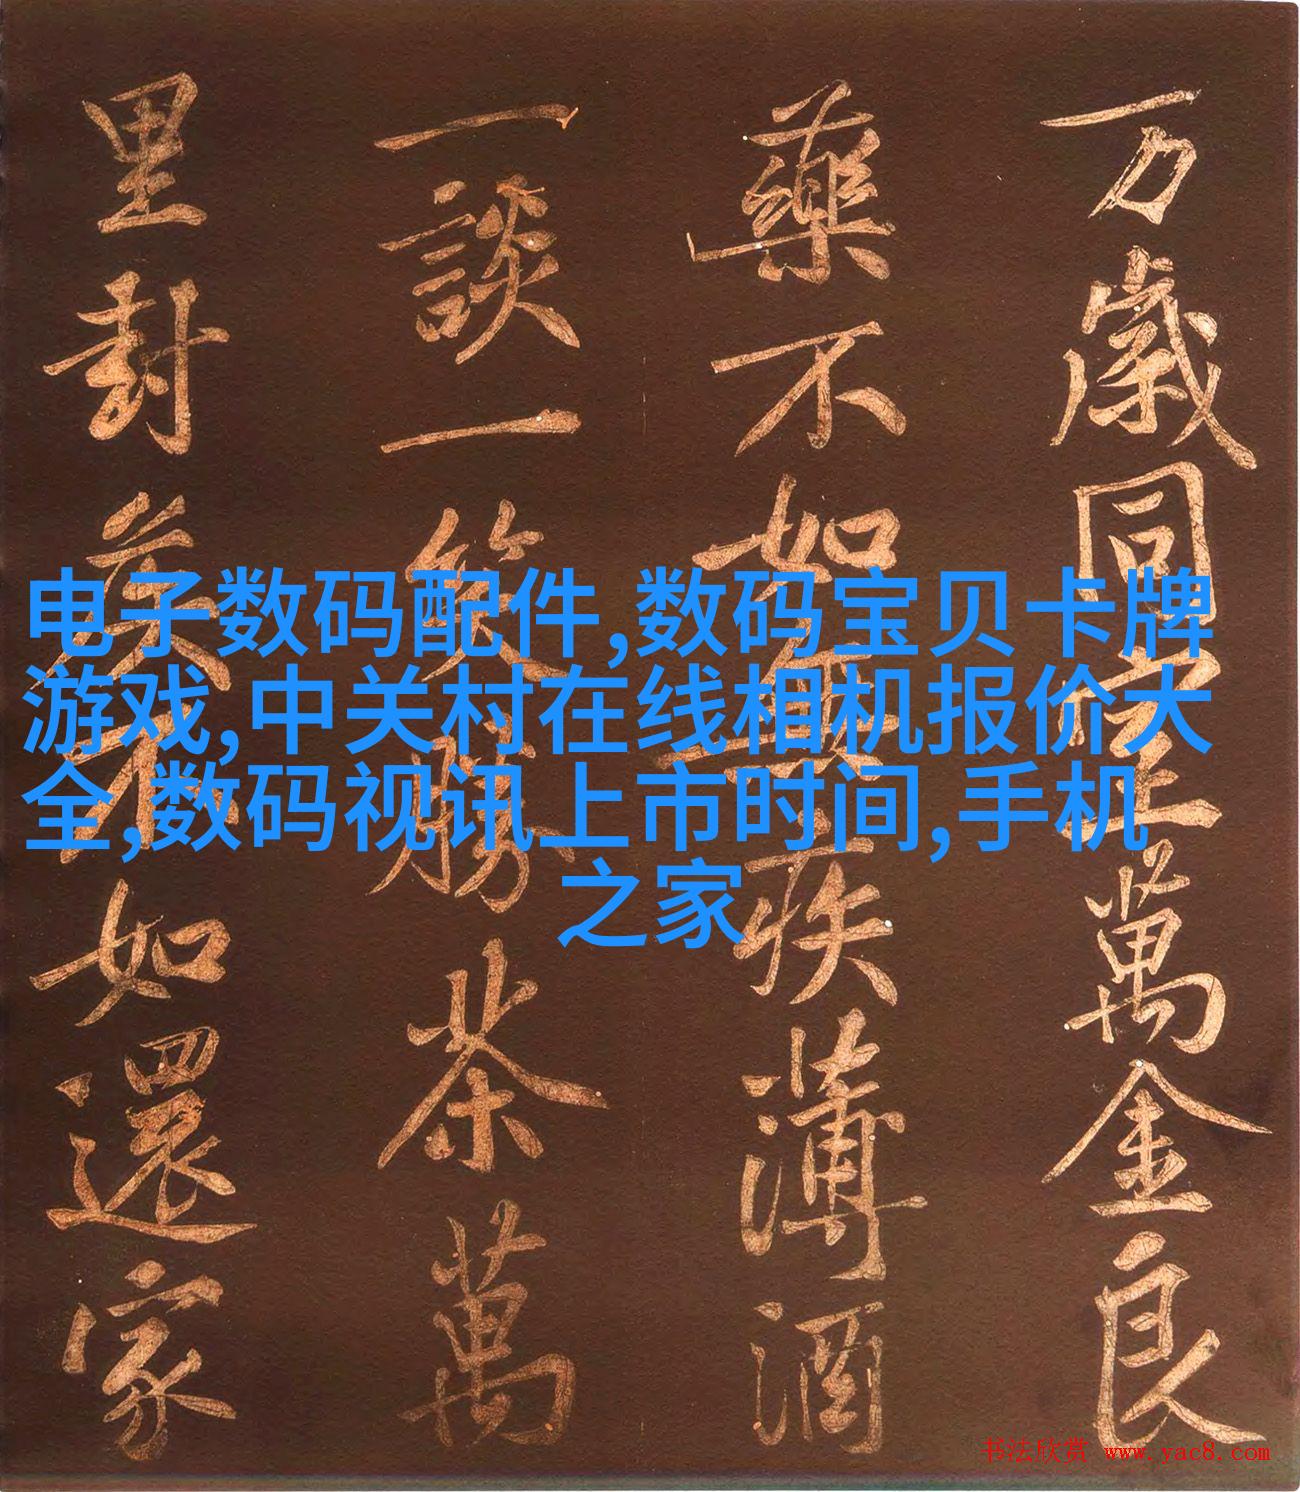 万歲同萬金良
藥不如無疾薄酒
一談一笑勝茶萬
里封侯不如還家
电子数码配件,数码宝贝卡牌
游戏,中关村在线相机报价大
全,数码视讯上市时间,手机
之家
书法欣赏 www.yac8.com